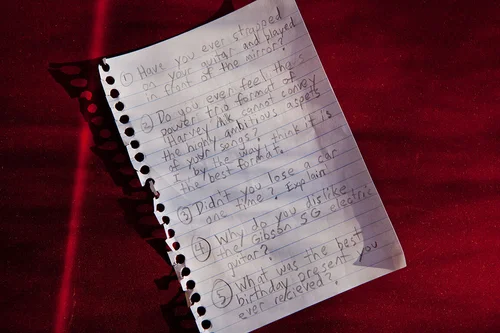 ① Have you ever strapped
on your guitar and played
in front of the mirror?
② Do you ever feel that
power trio format of
Harvey Milk cannot convey
the highly ambitious aspects
of your songs?
I, by the way, think it is
the best format.
③ Didn't you lose a car
one time? Explain
④ Why do you dislike
the Gibson SG electric
guitar?
⑤ What was the best
birthday present you
ever recieved?